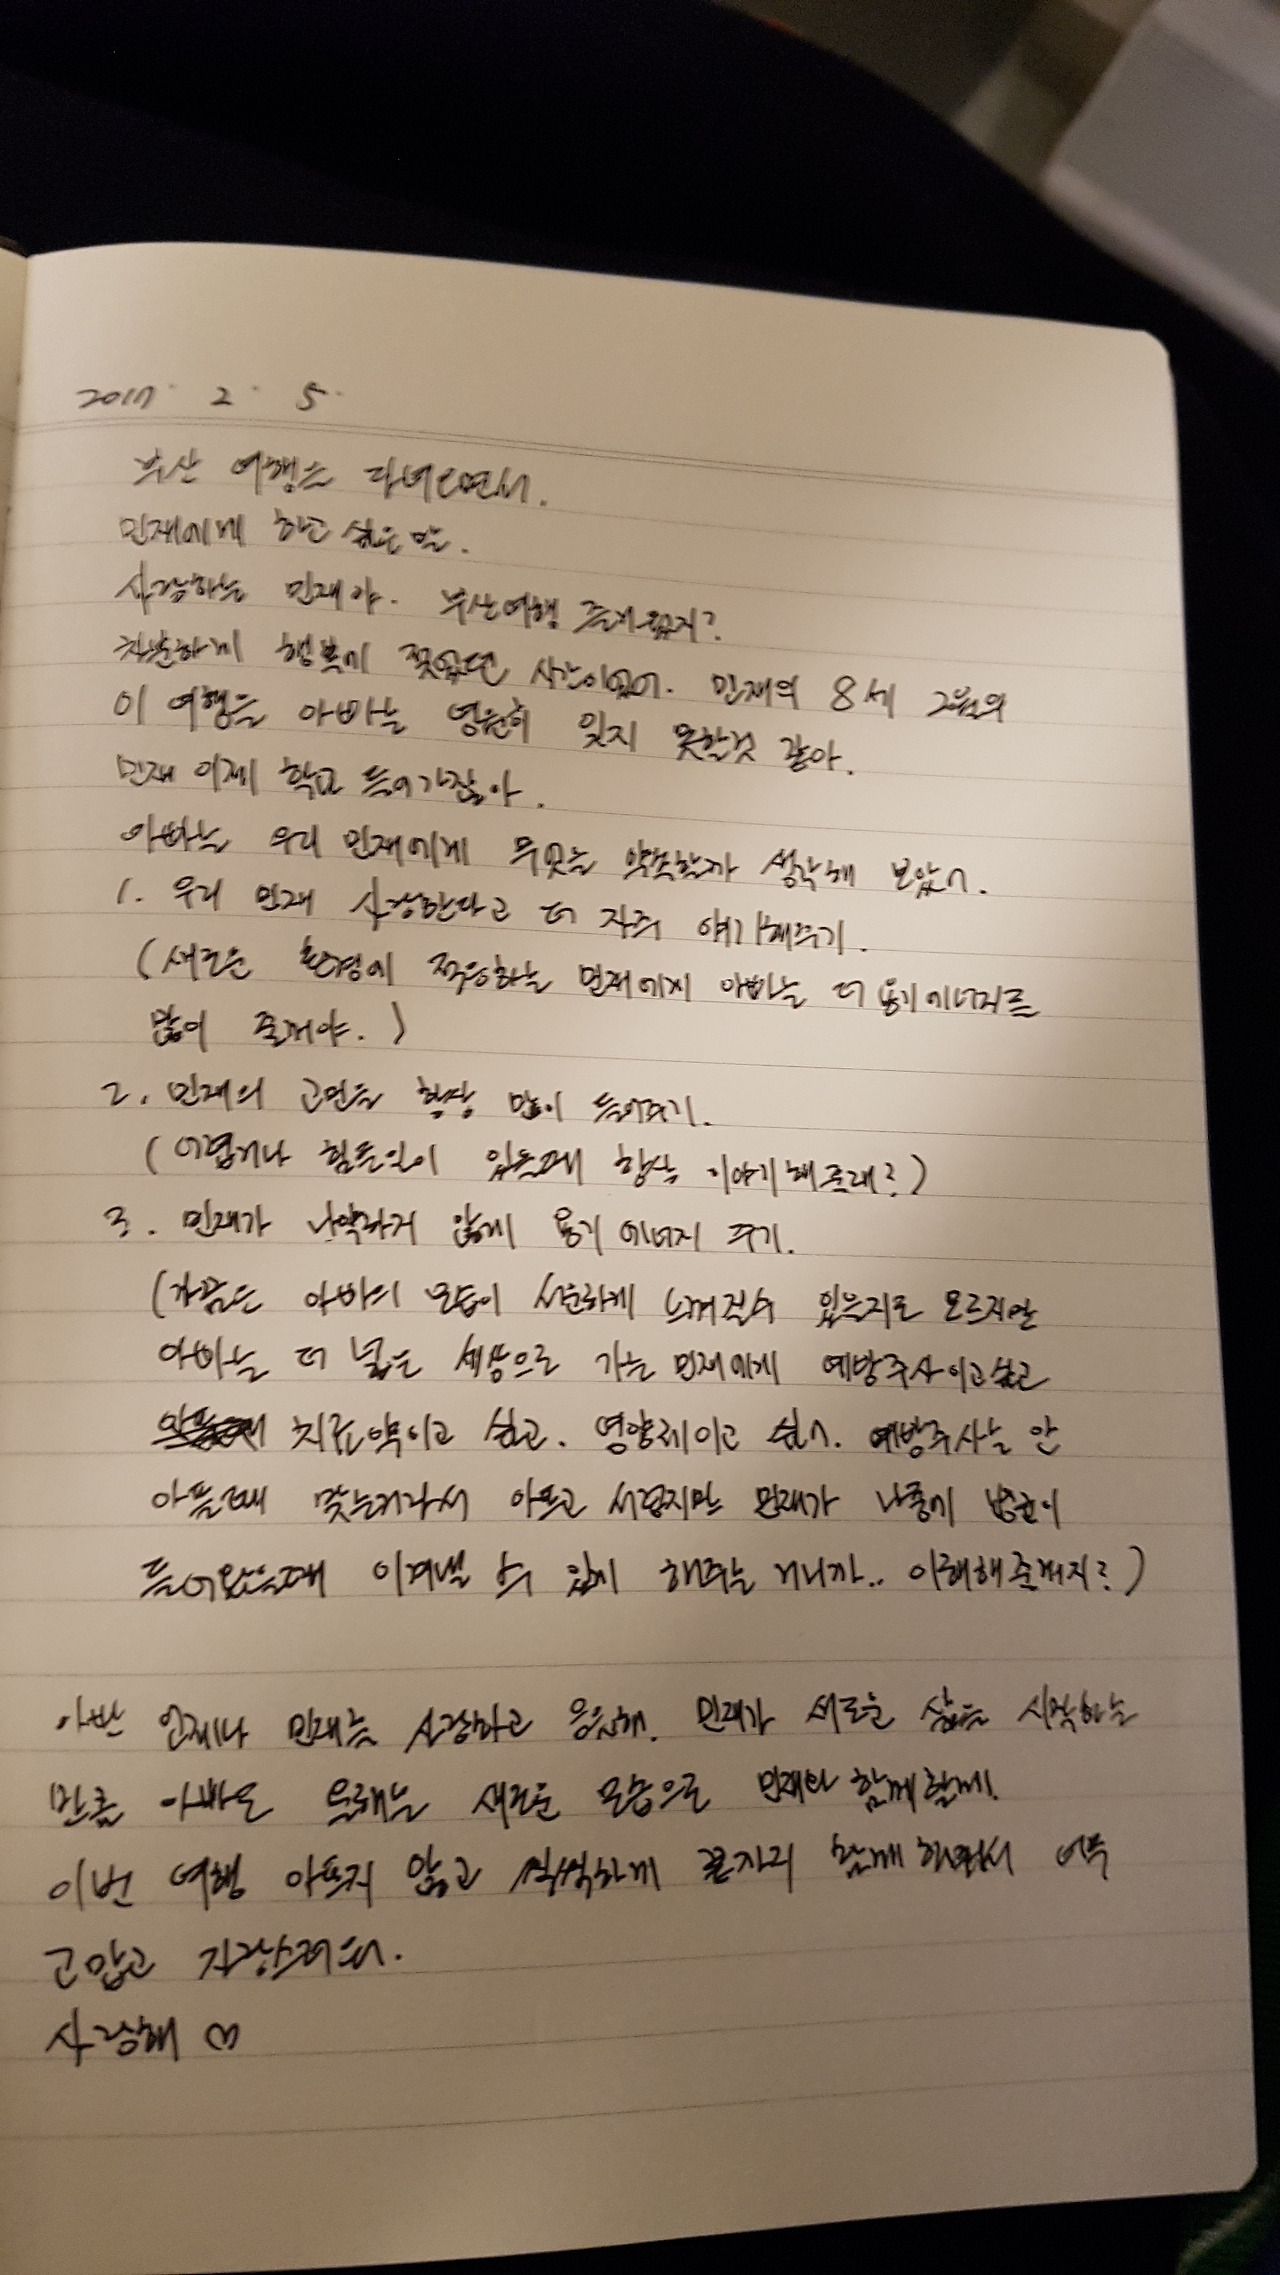 2017. 2. 5.
부산 여행을 다녀오면서.
민재에게 하고 싶은 말.
사랑하는 민재야. 부산여행 즐거웠지?
차분하게 행복이 찾았던 시간이었어. 민재의 8세 겨울의
이 여행을 아빠는 영원히 잊지 못할것 같아.
민재 이제 학교 들어가잖아.
아빠는 우리 민재에게 무엇을 약속할까 생각해 보았어.
1. 우리 민재 사랑한다고 더 자주 얘기해주기.
(새로운 환경에 적응하는 민재에게 아빠는 더 용기에너지를
많이 줄꺼야.)
2. 민재의 고민을 항상 많이 들어주기.
(어렵거나 힘든일이 있을때 항상 이야기해 줄래?)
3. 민재가 나약하게 않게 용기 에너지 주기.
(가끔은 아빠의 모습이 서운하게 느껴질수 있을지도 모르지만
아빠는 더 넓은 세상으로 가는 민재에게 예방주사이고싶고
치료약이고 싶고. 영양제이고 싶어. 예방주사는 안
아플때 맞는거라서 아프고 서럽지만 민재가 나중에 병균이
들어왔을때 이겨낼 수 있게 해주는 거니까.. 이해해줄꺼지?)
아빤 언제나 민재를 사랑하고 응원해. 민재가 새로운 삶을 시작하는
만큼 아빠도 올해는 새로운 모습으로 민재와 함께할께.
이번 여행 아프지 않고 씩씩하게 끝까지 함께 해줘서 너무
고맙고 자랑스러워.
사랑해 ♡